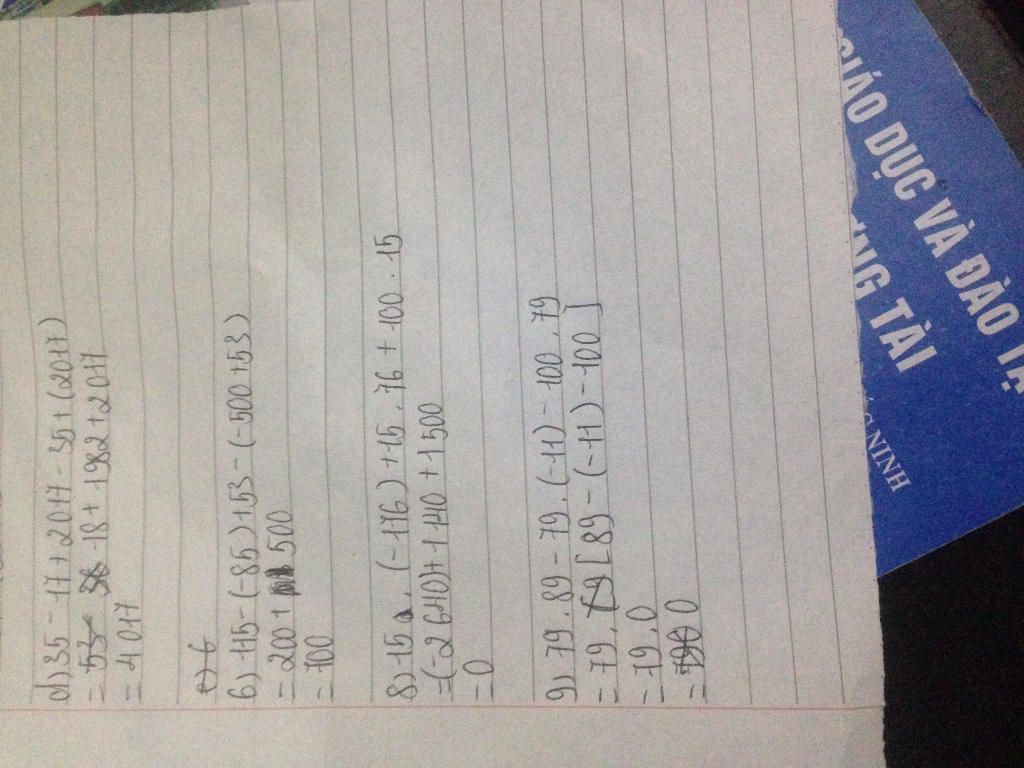 d) 35 - 17 + 2017 - 35 + (2017)
= 18 + 1982 + 2017
= 4017
6) 115 - (-85) + 53 - (-500 + 53)
= 200 + 500
= 700
8) 15 . (-176) + 15 . 76 + 100 . 15
= (-2640) + 1140 + 1500
= 0
9) 79 . 89 - 79 . (-11) - 100 . 79
= 79 . [89 - (-11) - 100]
= 79 . 0
= 0
GIÁO DỤC VÀ ĐÀO TẠ
NG TÀI
NINH